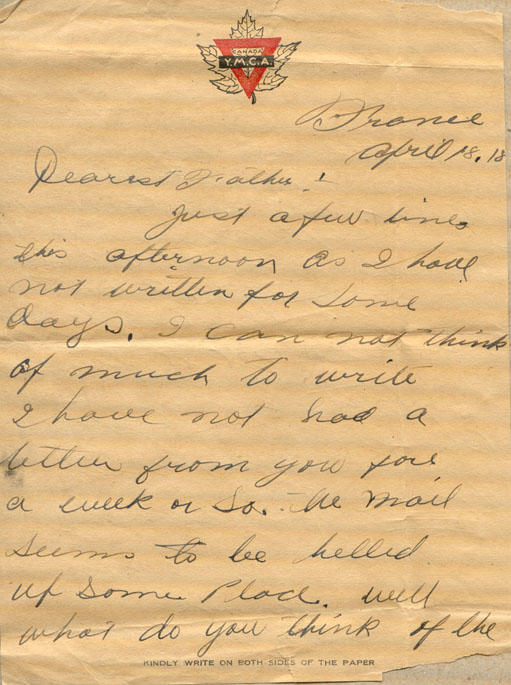 CANADA
Y.M.C.A.
France
April 18. 18
Dearest Father!
Just a few lines
this afternoon as I have
not written for some
days. I can not think
of much to write
I have not had a
letter from you fore
a week or so. The mail
seems to be helled
up some place. well
what do you think of the
KINDLY WRITE ON BOTH SIDES OF THE PAPER